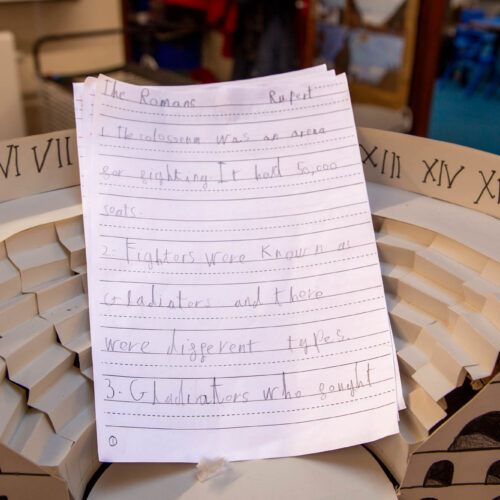 The Romans Rupert
1. The colosseum was an arena
for fighting. It had 50,000
seats.
2. Fighters were known as
Gladiators and there
were different types.
3. Gladiators who fought
1
VI VII XIII XIV